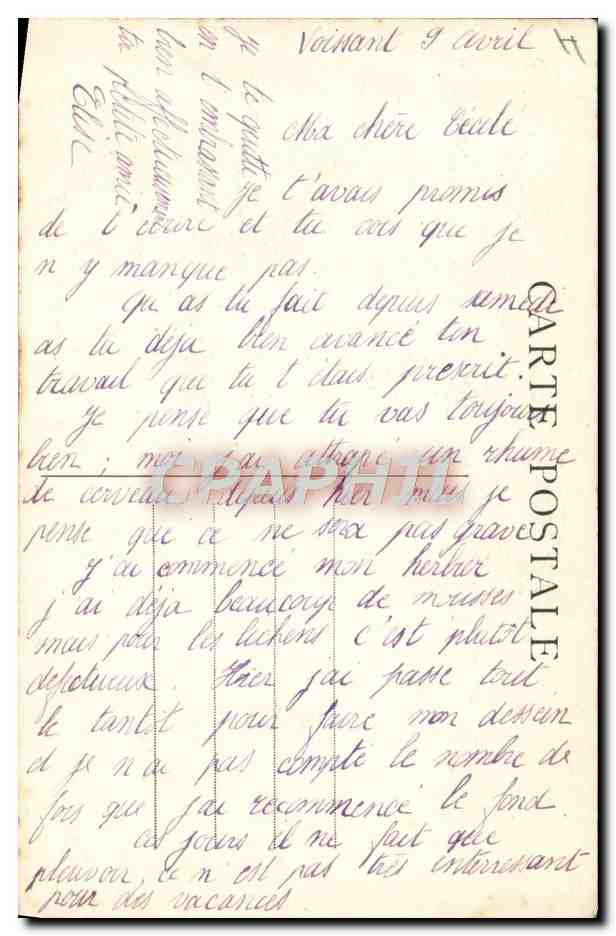 Voissant 9 avril
Ma chère Cécile
je t'avais promis
de t'écrire et tu vois que je
n y manque pas.
Qu as tu fait depuis samedi
as tu déja bien avancé ton
travail que tu t étais prescrit.
Je pense que tu vas toujours
bien ; moi j'ai attrapé un rhume
de cerveau depuis hier mais je
pense que ce ne sera pas grave
J'ai commencé mon herbier
j ai déja beaucoup de mousses
mais pour les lichens c'est plutôt
défectueux. Hier j'ai passé tout
le tantôt pour faire mon dessein
et je n ai pas compté le nombre de
fois que j'ai recommencé le fond.
ces jours il ne fait que
pleuvoir, ce n est pas très interressant
pour des vacances.
je te quitte
en t embrassant
bien affectueusement
ta petite amie
Elise
CARTE POSTALE
CPAPHIL